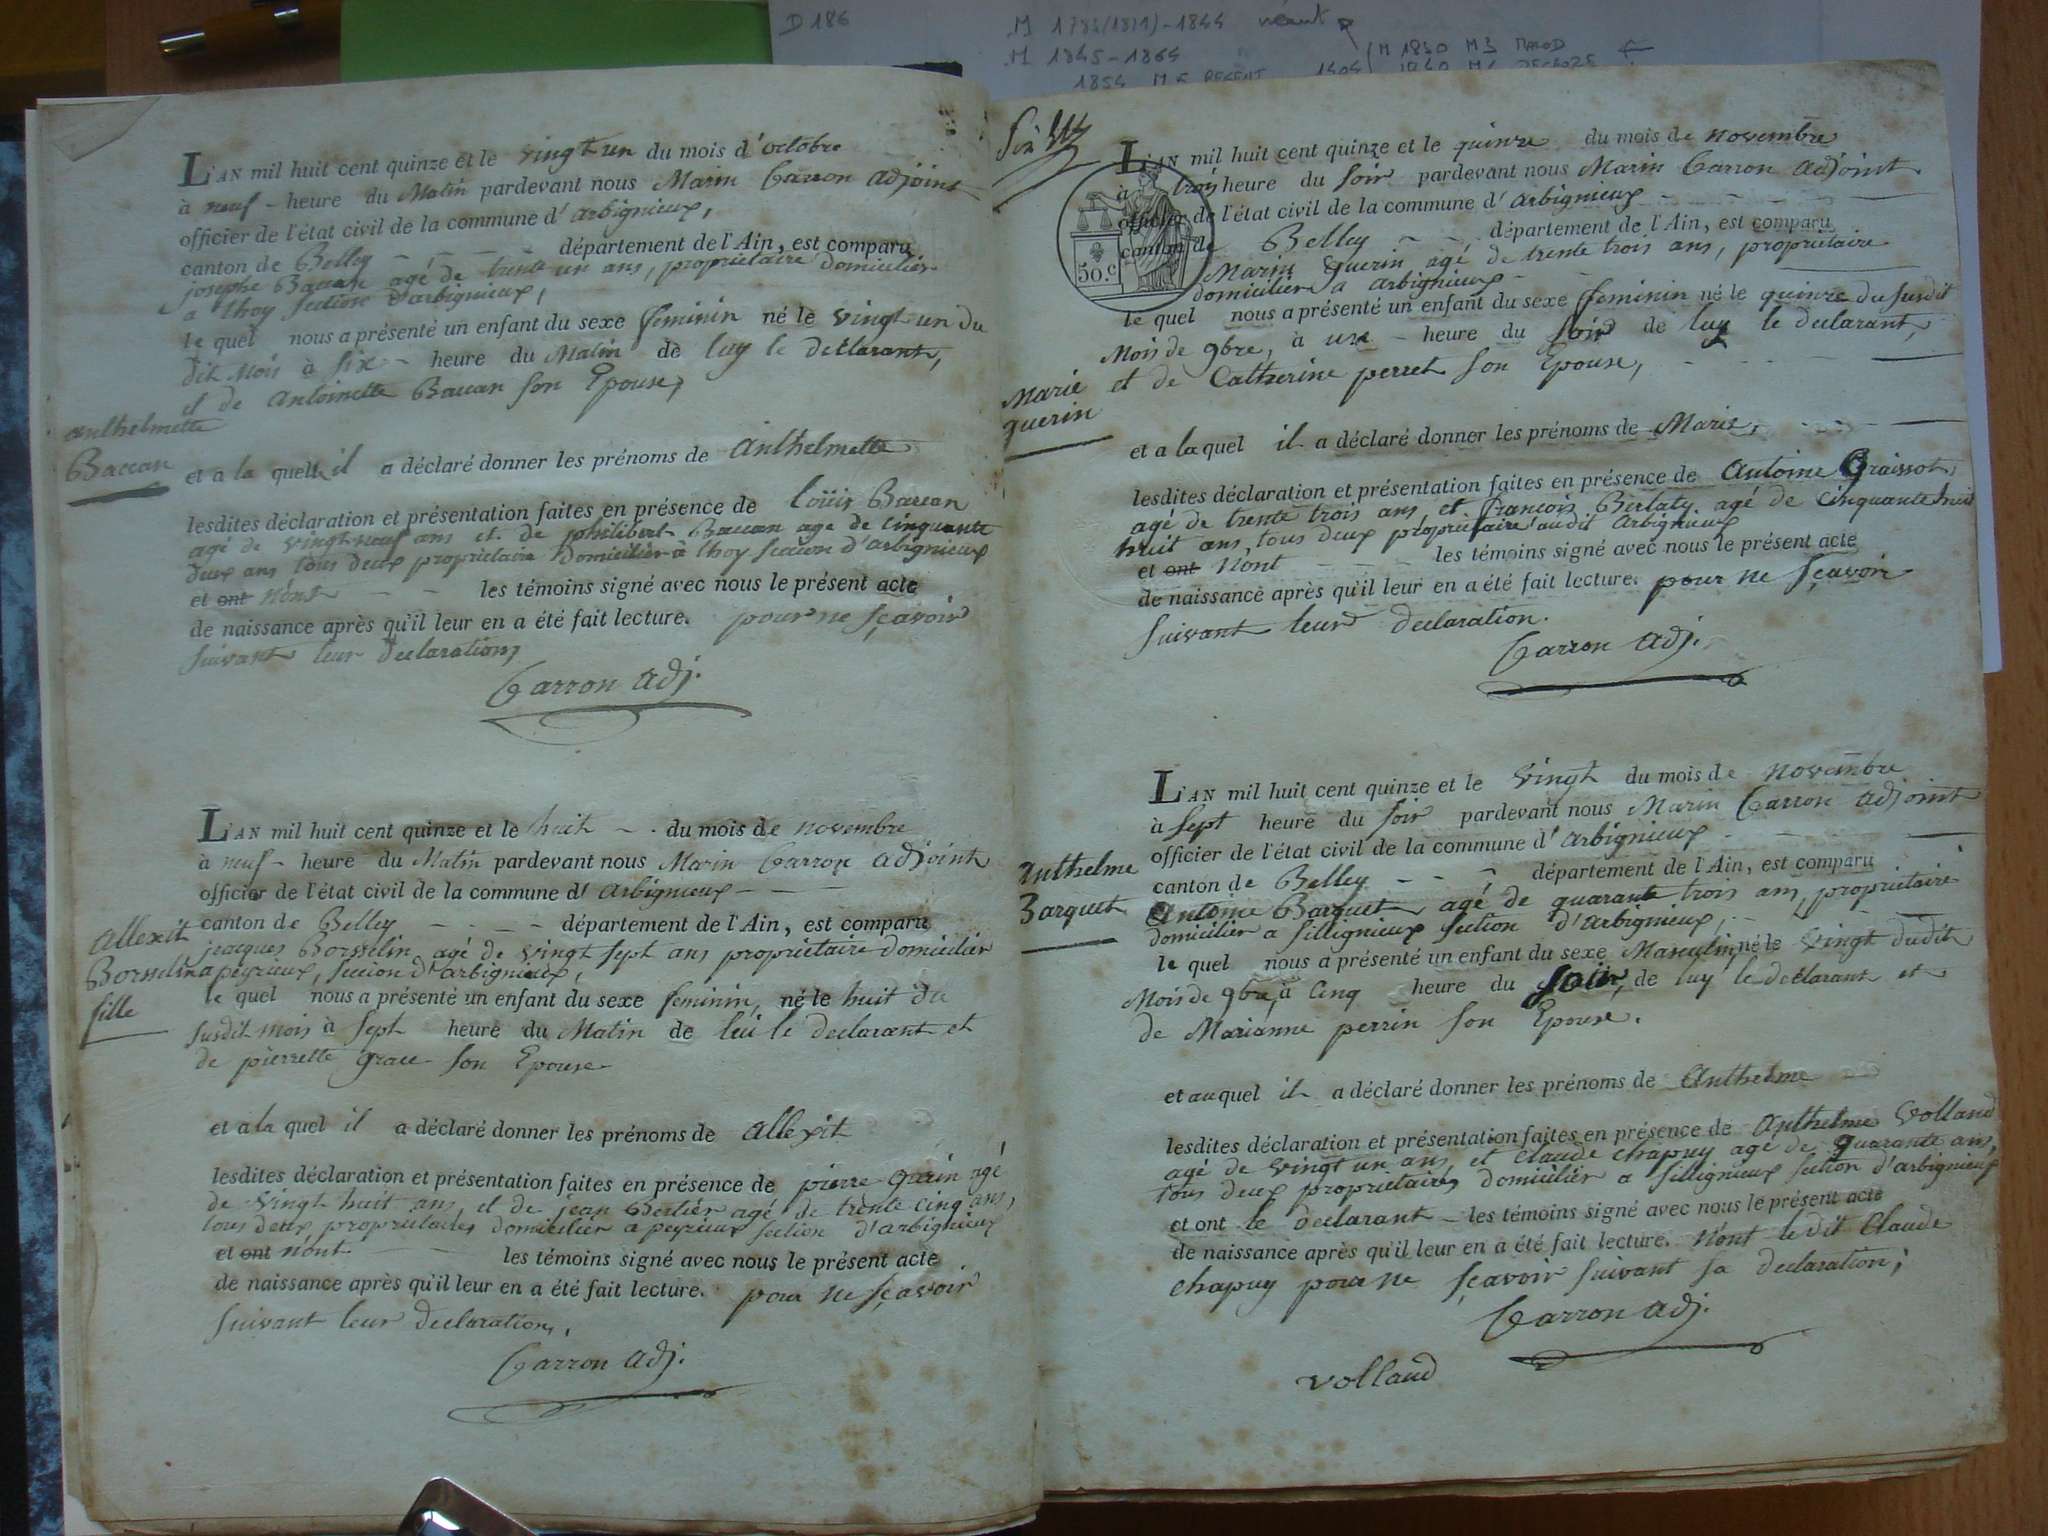 D 186
M 1845-1864
L'AN mil huit cent quinze et le vingt un du mois d'octobre
à neuf - heure du Matin pardevant nous Marin Carron adjoint
officier de l'état civil de la commune d'arbignieux,
canton de Belley - - - département de l'Ain, est comparu
josephe Baccan agé de trente un ans, proprietaire domicilier
a thoy section d'arbignieux,
le quel nous a présenté un enfant du sexe feminin né le vingt un du
dit Mois à six - heure du Matin de luy le declarant,
et de antoinette Baccan son Epouse,
anthelmette
Baccan
et a la quelle il a déclaré donner les prénoms de anthelmette
lesdites déclaration et présentation faites en présence de loüis Baccan
agé de vingt neuf ans et de philibert Baccan age de cinquante
deux ans tous deux proprietaire domicilier à thoy section d'arbignieux
et ont n'ont - - les témoins signé avec nous le présent acte
de naissance après qu'il leur en a été fait lecture. pour ne sçavoir
suivant leur declaration,
Carron adj.
L'AN mil huit cent quinze et le huit - . du mois de novembre
à neuf - heure du Matin pardevant nous Marin Carron adjoint
officier de l'état civil de la commune d'arbignieux - - -
canton de Belley - - - - département de l'Ain, est comparu
allexit
Borsselin
fille
jeacques Borsselin agé de vingt sept ans proprietaire domicilier
a peyrieux, section d'arbignieux,
le quel nous a présenté un enfant du sexe feminin, né le huit du
susdit mois à sept heure du Matin de lui le declarant et
de pierrette grace son Epouse
et a la quel il a déclaré donner les prénoms de allexit
lesdites déclaration et présentation faites en présence de pierre guerin agé
de vingt huit ans, et de jean Berlier agé de trente cinq ans,
tous deux proprietaires domicilier a peyrieux section d'arbignieux
et ont n'ont - - les témoins signé avec nous le présent acte
de naissance après qu'il leur en a été fait lecture. pour ne sçavoir
suivant leur declaration,
Carron adj.
L'AN mil huit cent quinze et le quinze du mois de novembre
à trois heure du soir pardevant nous Marin Carron adjoint
officier de l'état civil de la commune d'arbignieux - - - -
canton de Belley - - - département de l'Ain, est comparu
50 c.
Marin guerin agé de trente trois ans, proprietaire
domicilier a arbignieux - -
le quel nous a présenté un enfant du sexe feminin né le quinze du susdit
Mois de 9bre, à une - heure du soir de luy le declarant,
et de Catherine perret son Epouse,
Marie
guerin
et a la quel il a déclaré donner les prénoms de Marie,
lesdites déclaration et présentation faites en présence de antoine Graissot
agé de trente trois ans et françois Berlaty agé de cinquante huit
huit ans, tous deux proprietaire audit arbignieux
et ont n'ont - - - les témoins signé avec nous le présent acte
de naissance après qu'il leur en a été fait lecture. pour ne sçavoir
suivant leur declaration.
Carron adj.
L'AN mil huit cent quinze et le vingt du mois de novembre
à sept heure du soir pardevant nous Marin Carron adjoint
officier de l'état civil de la commune d'arbignieux - - -
canton de Belley - - - département de l'Ain, est comparu
anthelme
Barquet
antoine Barquet agé de quarante trois ans, proprietaire
domicilier a sillignieux section d'arbignieux,
le quel nous a présenté un enfant du sexe Masculin, né le vingt dudit
Mois de 9bre, à cinq heure du soir, de luy le declarant et
de Marianne perrin son Epouse.
et au quel il a déclaré donner les prénoms de anthelme
lesdites déclaration et présentation faites en présence de anthelme Volland
agé de vingt un ans, et claude chapuy agé de quarante ans,
tous deux proprietaires domicilier a sillignieux section d'arbignieux
et ont le declarant - les témoins signé avec nous le présent acte
de naissance après qu'il leur en a été fait lecture. N'ont le dit Claude
chapuy pour ne sçavoir suivant sa declaration,
Carron adj.
volland